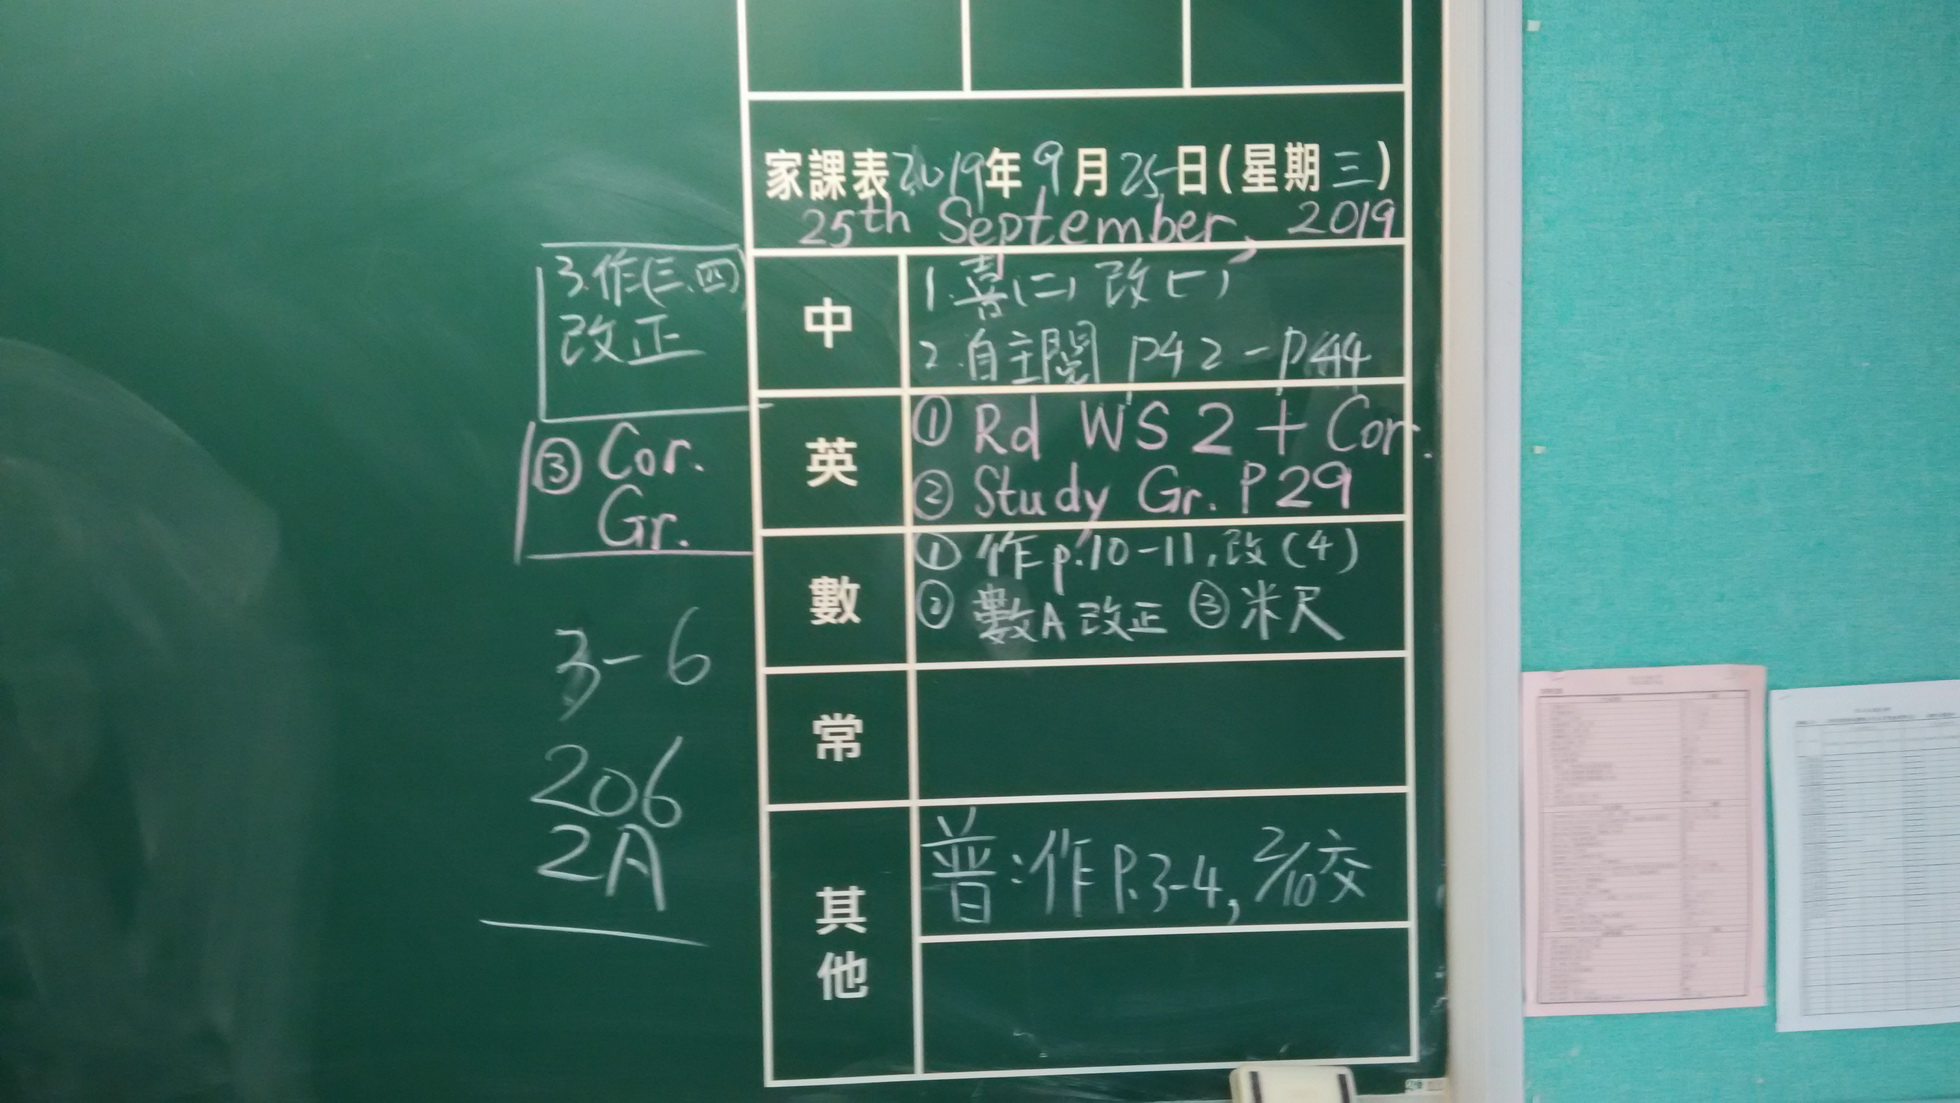 家課表2019年9月25日(星期三)
25th September, 2019
中
1.喜(二) 改(一)
2.自主閱 P42-P44
3.作(三、四)
改正
英
① Rd WS 2 + Cor.
② Study Gr. P29
③ Cor.
Gr.
數
① 作p.10-11,改(4)
② 數A 改正 ③ 米尺
常
其他
普:作P.3-4, 2/10交
3-6
206
2A